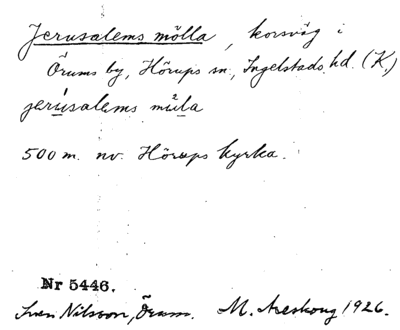 Jerusalems mölla, korsväg i
Örums by, Hörups sn., Ingelstads hd. (K.)
jerúsalems mùla
500 m. nv. Hörups kyrka.
Nr 5446.
Sven Nilsson, Örum. M. Areskoug 1926.